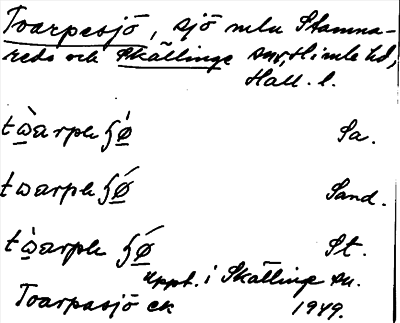 Tvarpesjö, sjö mlu Stamna-
reds och Skällinge snr, Himle hd,
Hall. l.
twàrpe ʃǿ Sa.
twarpe ʃǿ Sand.
twàrpe ʃǿ St.
uppt. i Skällinge sn.
Toarpasjö ek 1949.